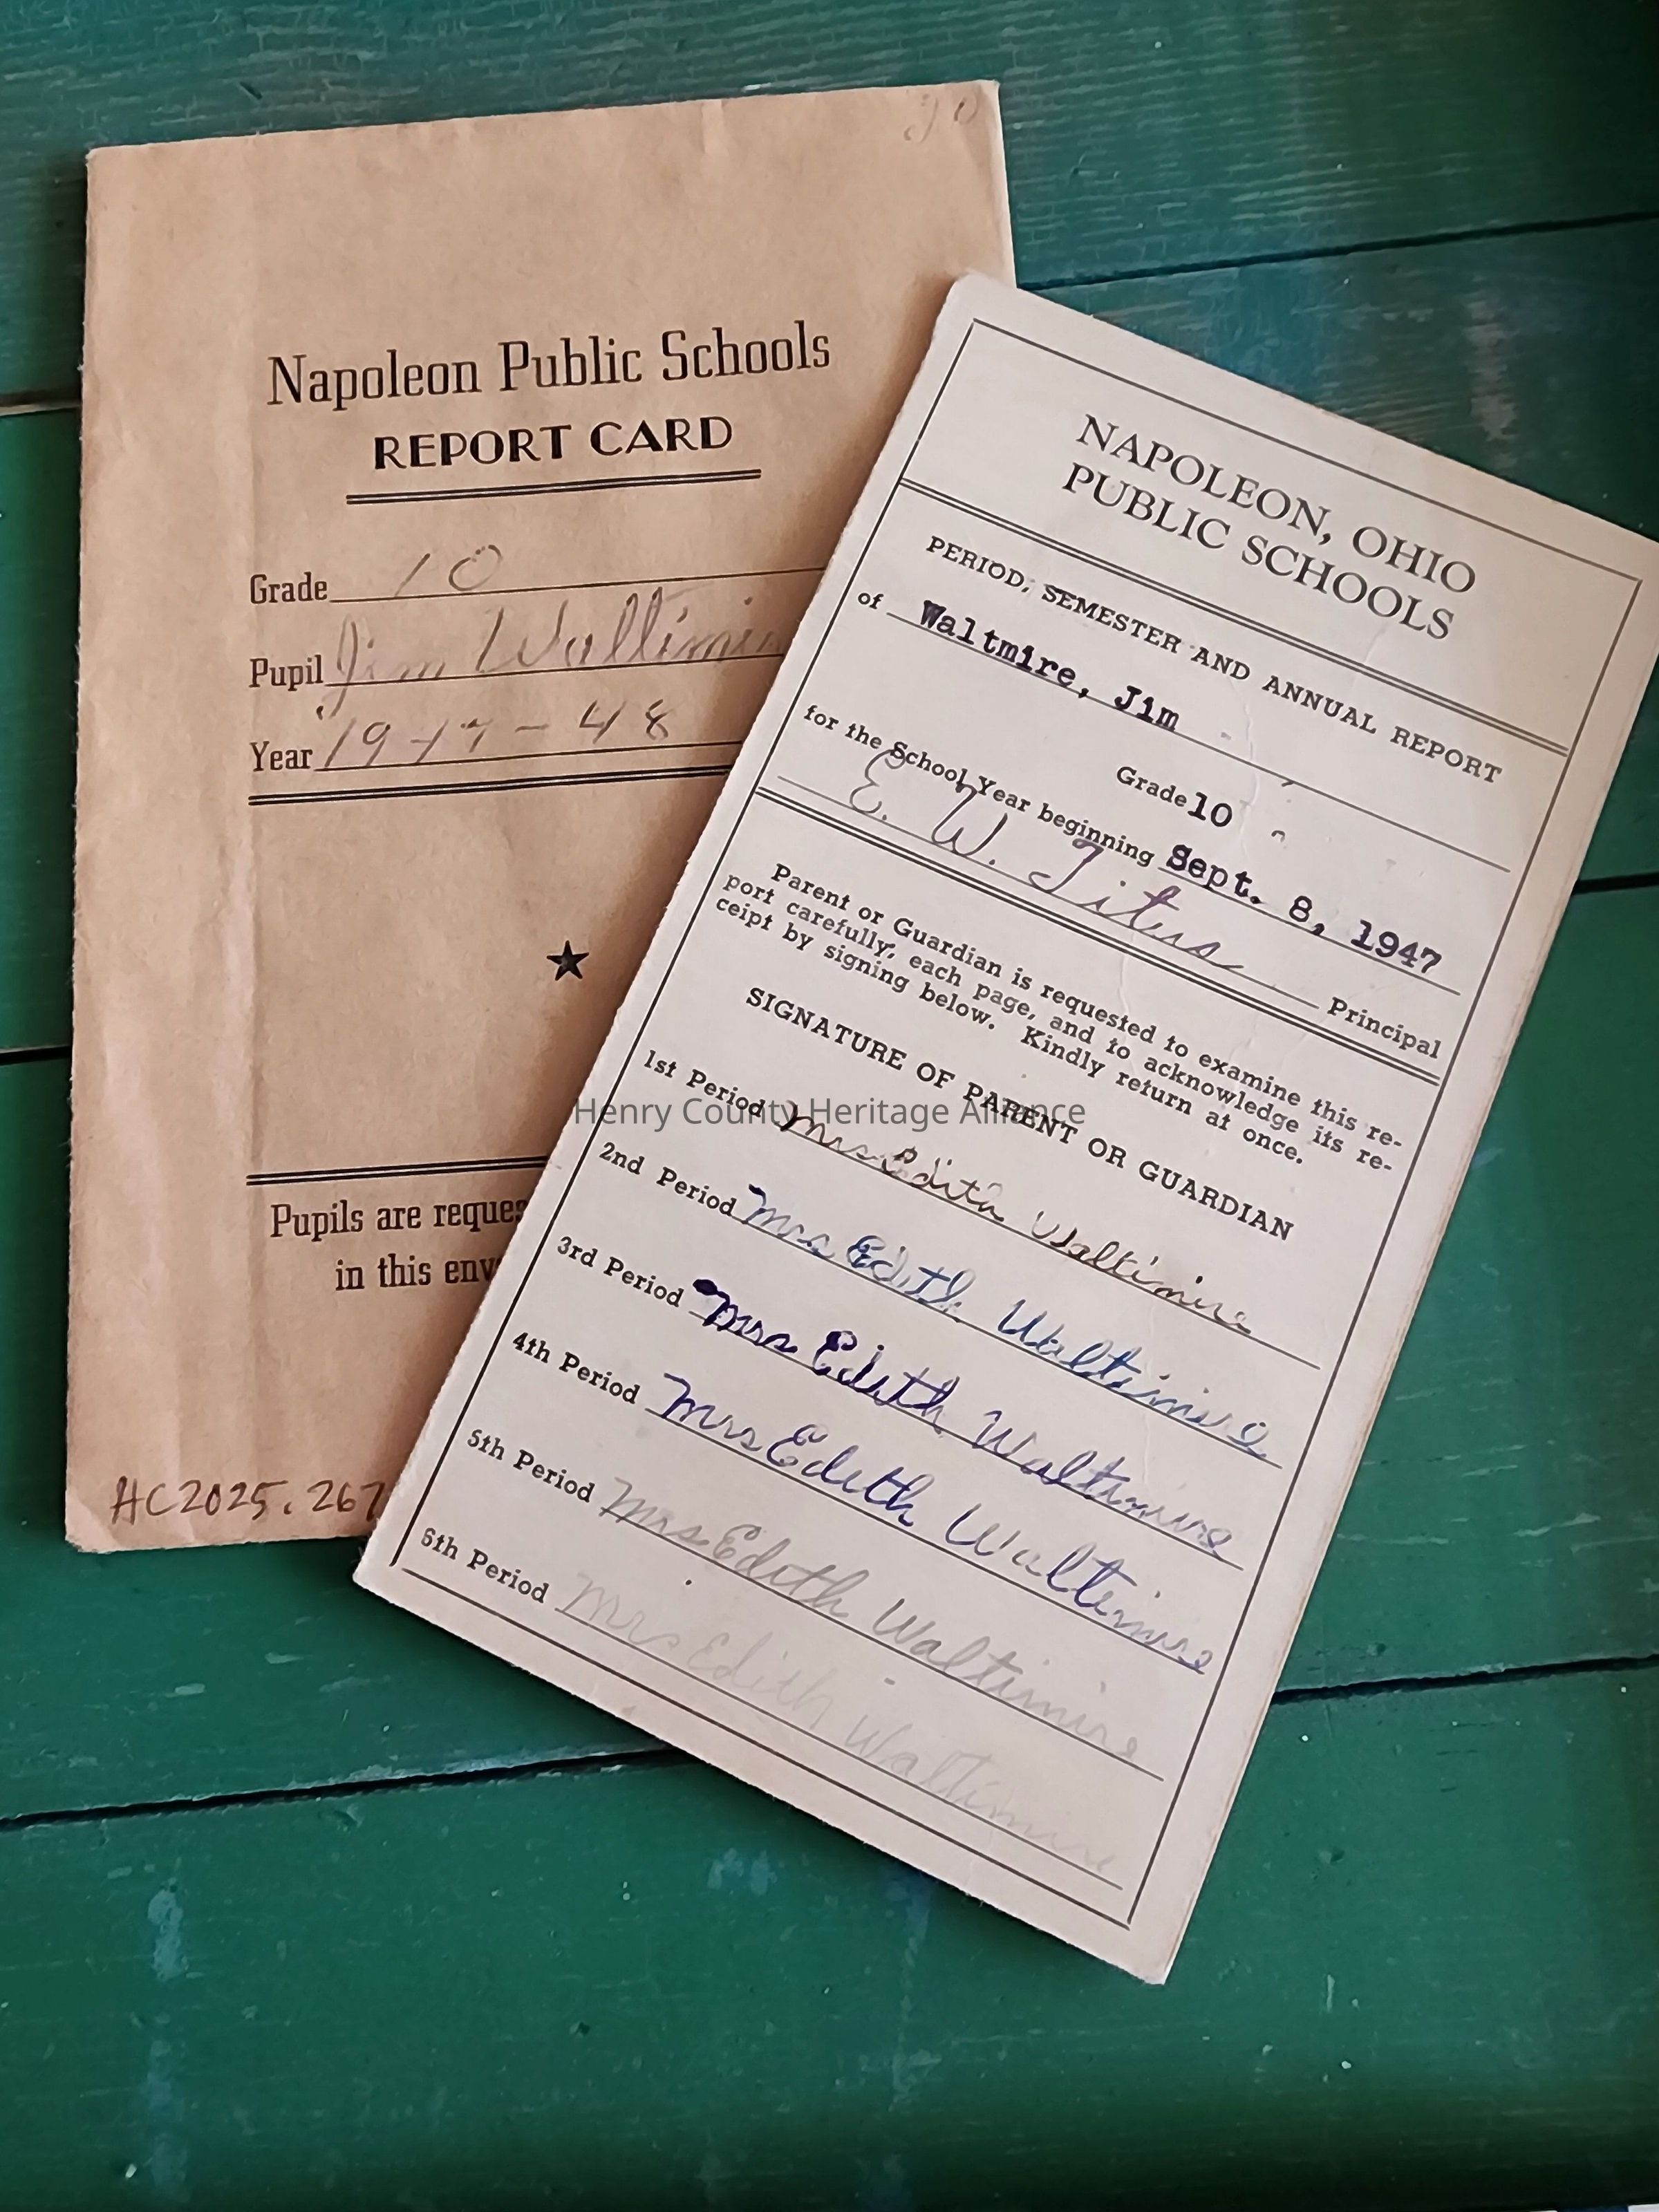 20
Napoleon Public Schools
REPORT CARD
Grade 10
Pupil Jim Waltimir
Year 1947-48
★
Pupils are reques
in this env
HC2025.267
NAPOLEON, OHIO
PUBLIC SCHOOLS
PERIOD, SEMESTER AND ANNUAL REPORT
of Waltmire, Jim
Grade 10
for the School Year beginning Sept. 8, 1947
E. W. Titus Principal
Parent or Guardian is requested to examine this re-
port carefully, each page, and to acknowledge its re-
ceipt by signing below. Kindly return at once.
SIGNATURE OF PARENT OR GUARDIAN
1st Period Mrs Edith Waltimire
2nd Period Mrs Edith Waltimire
3rd Period Mrs Edith Waltimire
4th Period Mrs Edith Waltimire
5th Period Mrs Edith Waltimire
6th Period Mrs Edith Waltimire
Henry County Heritage Alliance